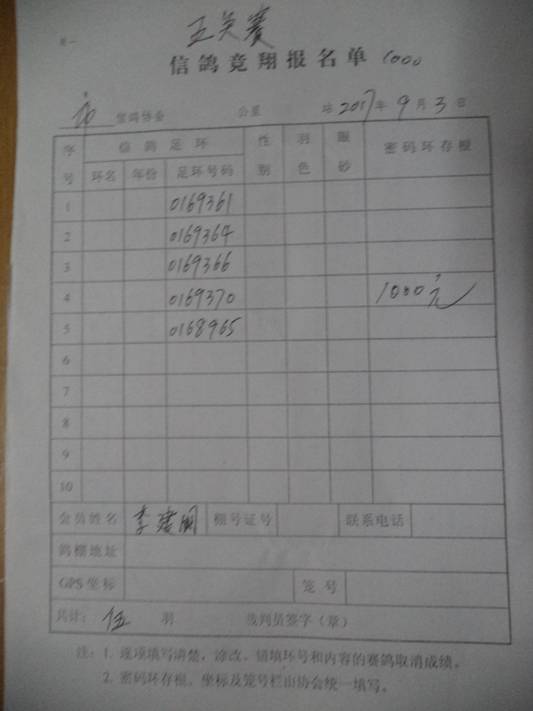 五关赛
表一
信鸽竞翔报名单 1000
信鸽协会 公里 站 2017年9月3日
序号 信鸽足环 性别 羽色 眼砂 密码环存根
环名 年份 足环号码
1 0169361
2 0169364
3 0169366
4 0169370 1000元
5 0168965
6
7
8
9
10
会员姓名 李建 棚号证号 联系电话
鸽棚地址
GPS坐标 笼号
共计: 伍 羽 裁判员签字(章)
注: 1. 逐项填写清楚，涂改、错填环号和内容的赛鸽取消成绩。
2. 密码环存根、坐标及笼号栏由协会统一填写。